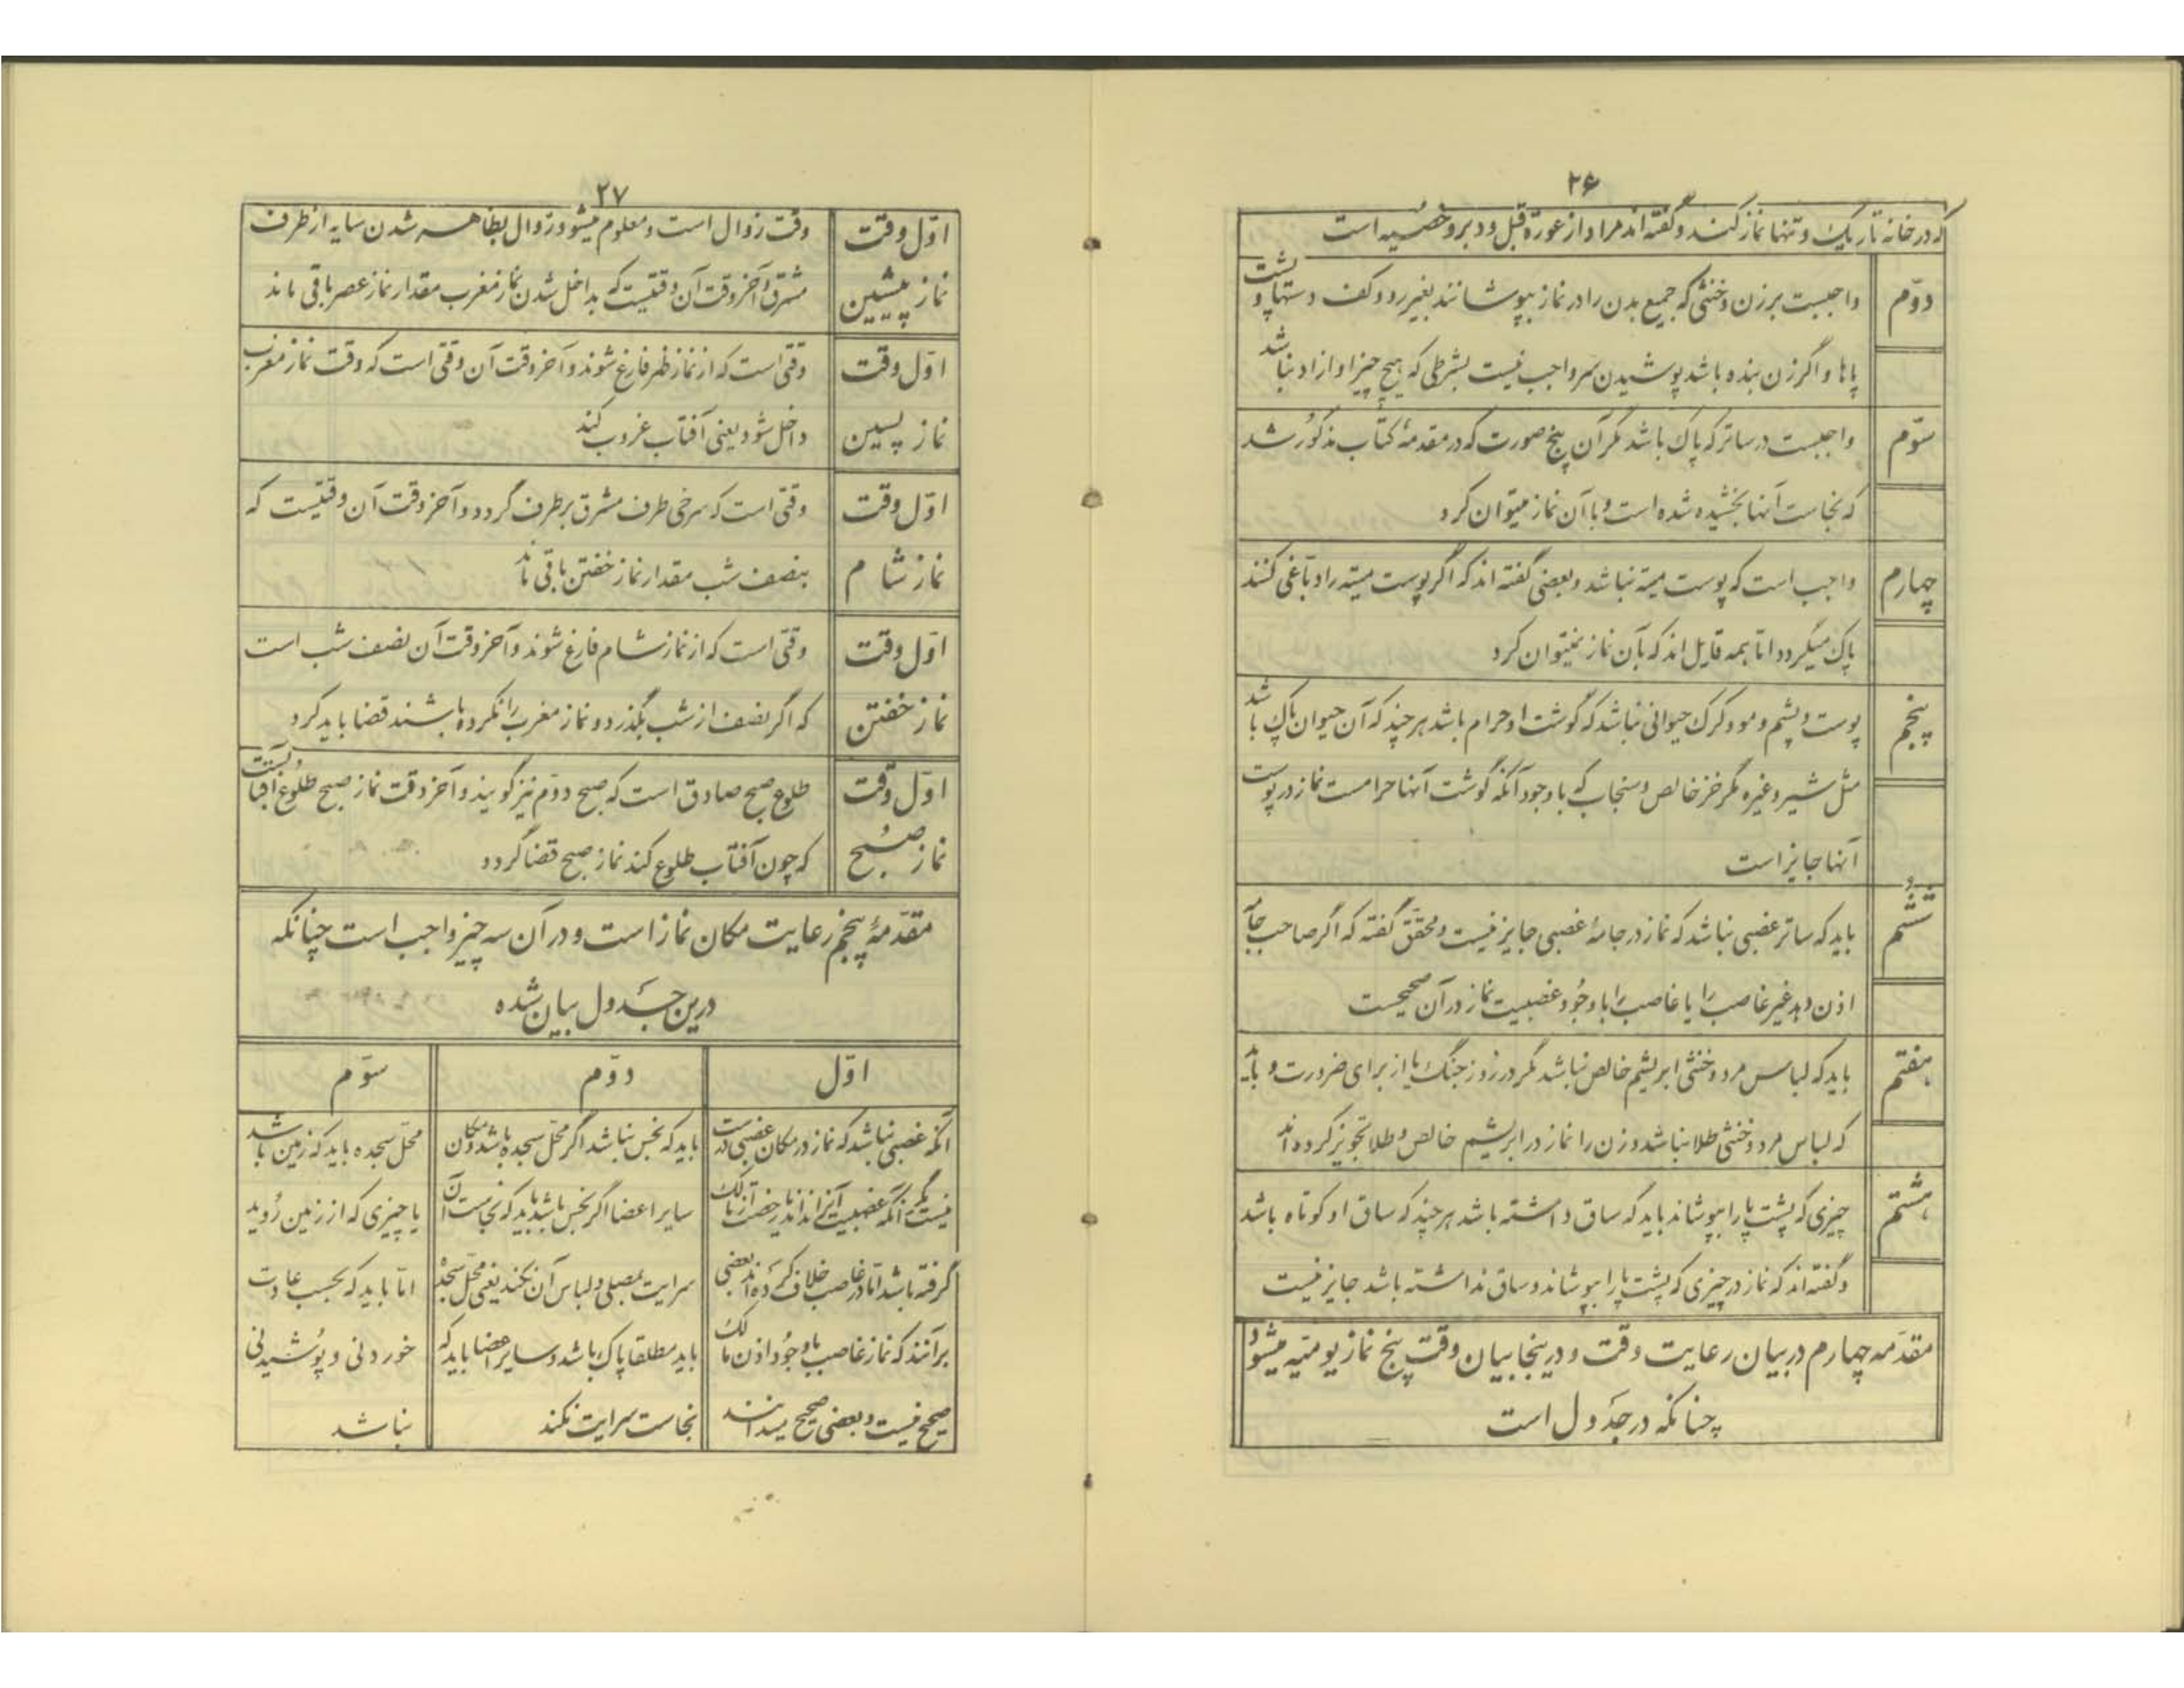 ۲۶
که در خانه تاریک و تنها نماز کنند و گفته‌اند مراد از عورة قبل و دبر و خصیه است
دوّم
واجبست بر زن و خنثی که جمیع بدن را در نماز بپوشانند بغیر رو و کف دستها و پشت
پاها و اگر زن بنده باشد پوشیدن سر واجب نیست بشرطی که هیچ چیز او ازاد نباشد
سوّم
واجبست در ساتر که پاک باشد مگر آن پنج صورت که در مقدمهٔ کتاب مذکور شد
که نجاست آنها بخشیده شده است و با آن نماز میتوان کرد
چهارم
واجب است که پوست میته نباشد و بعضی گفته‌اند که اگر پوست میته را دبّاغی کنند
پاک میگردد امّا همه قایل‌اند که بآن نماز نمیتوان کرد
پنجم
پوست و پشم و مو و کرک حیوانی نباشد که گوشت او حرام باشد هر چند که آن حیوان پاک باشد
مثل شیر و غیره مگر خز خالص و سنجاب که باوجود آنکه گوشت آنها حرامست نماز در پوست
آنها جایز است
ششم
باید که ساتر غصبی نباشد که نماز در جامهٔ غصبی جایز نیست و محقق گفته که اگر صاحب جامه
اذن دهد غیر غاصب را یا غاصب را باوجود غصبیت نماز در آن صحیحست
هفتم
باید که لباس مرد و خنثی ابریشم خالص نباشد مگر در روز جنگ یا از برای ضرورت و باید
که لباس مرد و خنثی طلا نباشد و زن را نماز در ابریشم خالص و طلا تجویز کرده‌اند
هشتم
چیزی که پشت پا را بپوشاند باید که ساق داشته باشد هر چند که ساق او کوتاه باشد
و گفته‌اند که نماز در چیزی که پشت پا را بپوشاند و ساق نداشته باشد جایز نیست
مقدّمه چهارم در بیان رعایت وقت و درینجا بیان وقت پنج نماز یومیّه میشود
چنانکه در جدول است
۲۷
اوّل وقت نماز پیشین
وقت زوال است و معلوم میشود زوال بظاهر شدن سایه از طرف
مشرق و آخر وقت آن وقتیست که بداخل شدن نماز مغرب مقدار نماز عصر باقی ماند
اوّل وقت نماز پسین
وقتی است که از نماز ظهر فارغ شوند و آخر وقت آن وقتی است که وقت نماز مغرب
داخل شود یعنی آفتاب غروب کند
اوّل وقت نماز شام
وقتی است که سرخی طرف مشرق برطرف گردد و آخر وقت آن وقتیست که
بنصف شب مقدار نماز خفتن باقی ماند
اوّل وقت نماز خفتن
وقتی است که از نماز شام فارغ شوند و آخر وقت آن نصف شب است
که اگر نصف از شب بگذرد و نماز مغرب را نکرده باشند قضا باید کرد
اوّل وقت نماز صبح
طلوع صبح صادق است که صبح دوّم نیز گویند و آخر وقت نماز صبح طلوع آفتابست
که چون آفتاب طلوع کند نماز صبح قضا گردد
مقدّمهٔ پنجم رعایت مکان نماز است و در آن سه چیز واجب است چنانکه
درین جدول بیان شده
اوّل
آنکه غصبی نباشد که نماز در مکان غصبی درست
نیست مگر آنکه غصبیت آنرا نداند یا رخصت از مالک
گرفته باشد امّا در غاصب خلاف کرده‌اند بعضی
برآنند که نماز غاصب باوجود اذن مالک
صحیح نیست و بعضی صحیح میدانند
دوّم
باید که نجس نباشد اگر محلّ سجده باشد و مکان
سایر اعضا اگر نجس باشد باید که نجاست آن
سرایت بمصلی و لباس آن نکند یعنی محلّ سجده
باید مطلقا پاک باشد و سایر اعضا باید که
نجاست سرایت نکند
سوّم
محلّ سجده باید که زمین باشد
یا چیزی که از زمین رُوید
امّا باید که بحسب عادت
خوردنی و پوشیدنی
نباشد